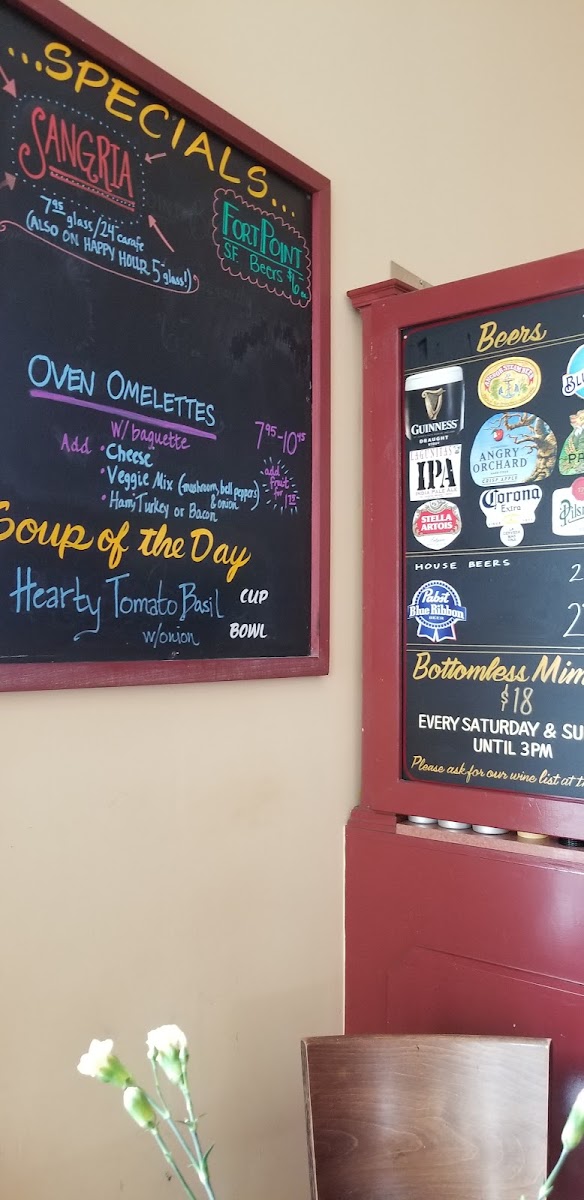 ...SPECIALS...
SANGRIA
7.95 glass/24- carafe
(ALSO ON HAPPY HOUR 5- glass!)
FORT POINT
SF Beers $6-
OVEN OMELETTES
w/ baguette
7.95-10.45
Add • Cheese
• Veggie Mix (mushroom, bell peppers)
& onion
• Ham, Turkey or Bacon
add
fruit
for
Soup of the Day
Hearty Tomato Basil
w/onion
CUP
BOWL
Beers
GUINNESS
DRAUGHT
BLU
LAGUNITAS
IPA
INDIA PALE ALE
ANGRY
ORCHARD
CRISP APPLE
PA
STELLA
ARTOIS
Corona
Extra
Pils
HOUSE BEERS
2
Pabst
Blue Ribbon
BEER
2
Bottomless Mim
$18
EVERY SATURDAY & SU
UNTIL 3PM
Please ask for our wine list at th